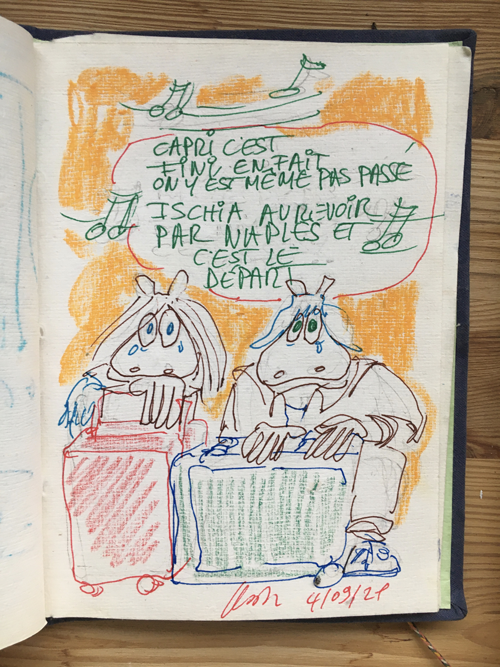 CAPRI C'EST
FINI, EN FAIT
ON Y EST MÊME PAS PASSÉ
ISCHIA AU REVOIR
PAR NAPLES ET
C'EST LE
DÉPART
4/09/21